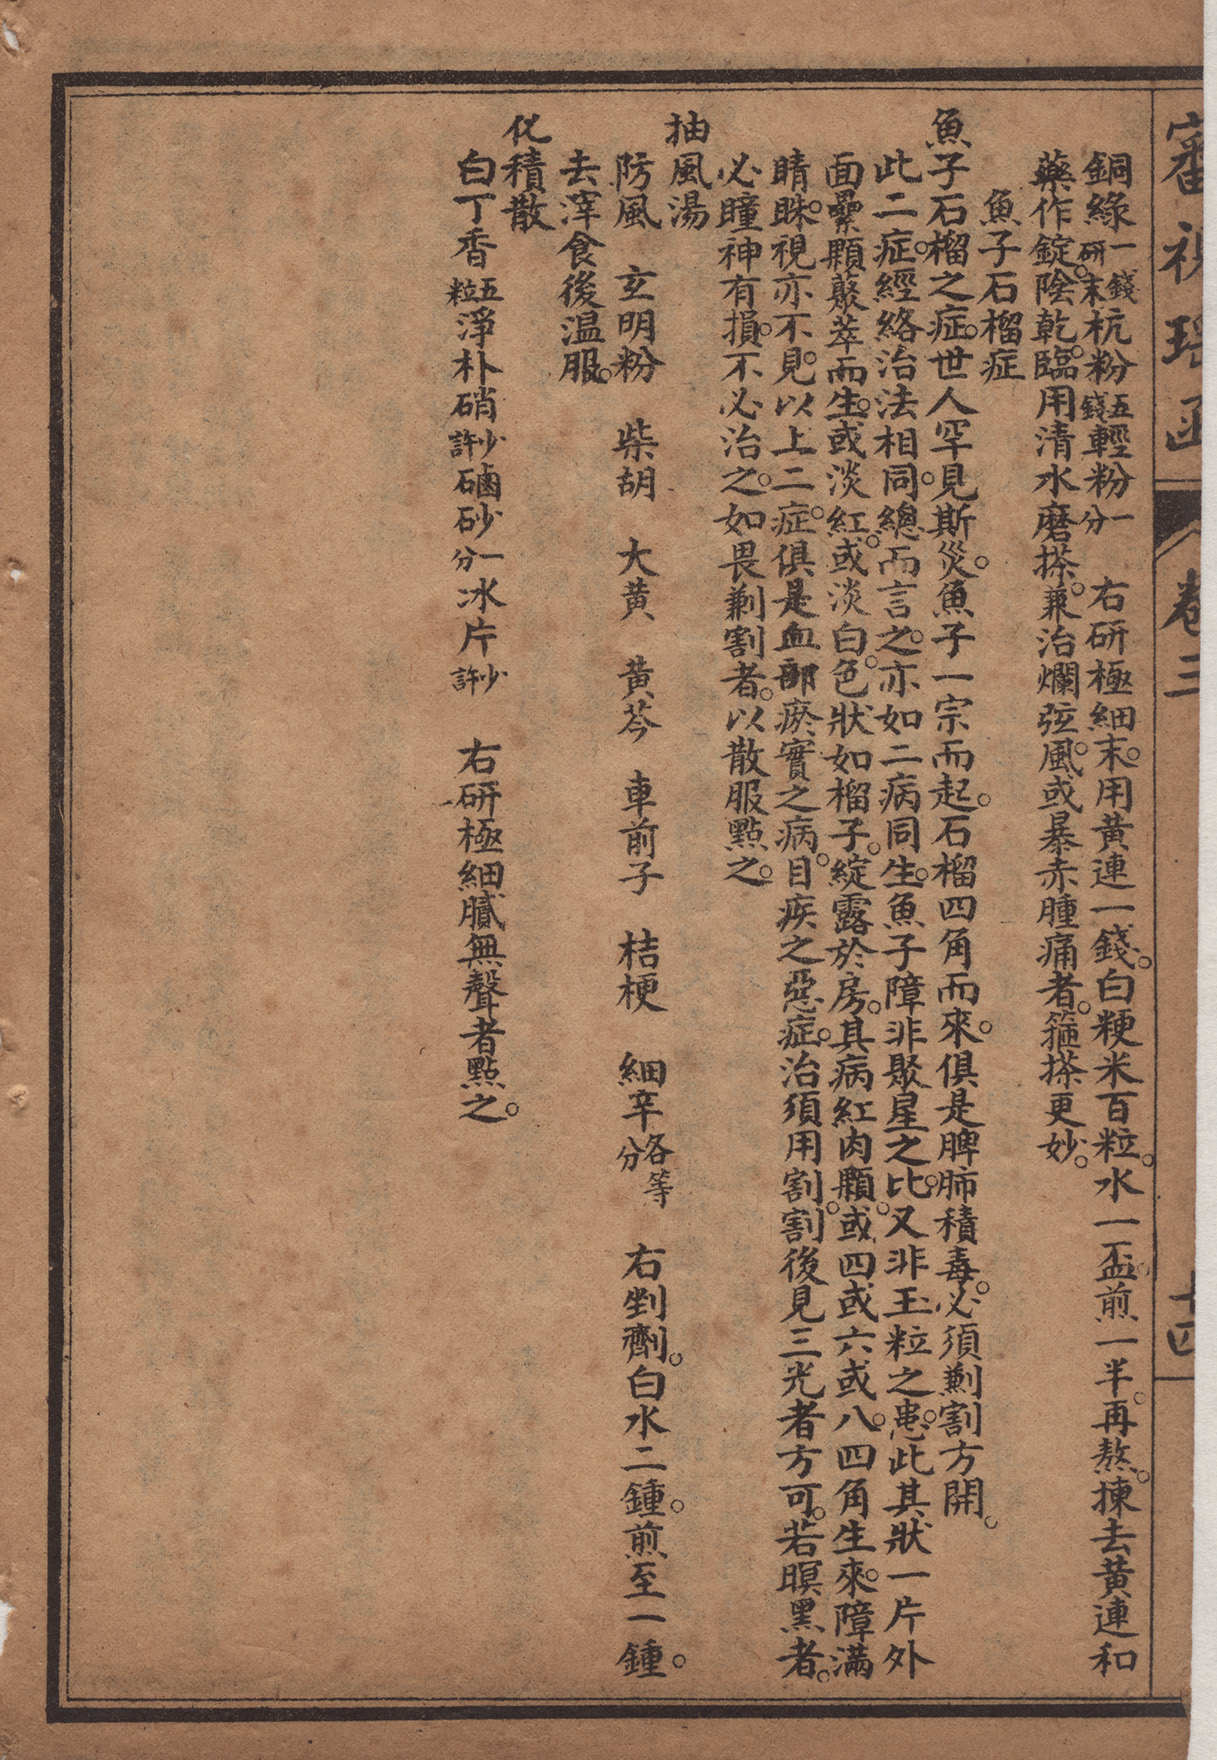 審視瑤函 卷三 十四
銅綠一錢研末杭粉五錢輕粉一分 右研極細末。用黃連一錢。白粳米百粒。水一盃。煎一半。再熬。揀去黃連和
藥作錠。陰乾。臨用清水磨搽。兼治爛弦風。或暴赤腫痛者。箍搽更妙。
魚子石榴症
魚子石榴之症。世人罕見斯災。魚子一宗而起。石榴四角而來。俱是脾肺積毒。必須劆割方開。
此二症。經絡治法相同。總而言之。亦如二病同生。魚子障非聚星之比。又非玉粒之患。此其狀一片外
面纍顆叢萃而生。或淡紅。或淡白。色狀如榴子。綻露於房。其病紅肉顆。或四或六或八。四角生來。障滿
睛眛。視亦不見。以上二症。俱是血部瘀實之病。目疾之惡症。治須用割。割後見三光者方可。若暝黑者。
必瞳神有損。不必治之。如畏劆割者。以散服點之。
抽風湯
防風 玄明粉 柴胡 大黃 黃芩 車前子 桔梗 細辛各等分 右剉劑。白水二鍾。煎至一鍾。
去滓食後温服。
化積散
白丁香五粒淨朴硝少許硇砂一分冰片少許 右研極細膩無聲者點之。